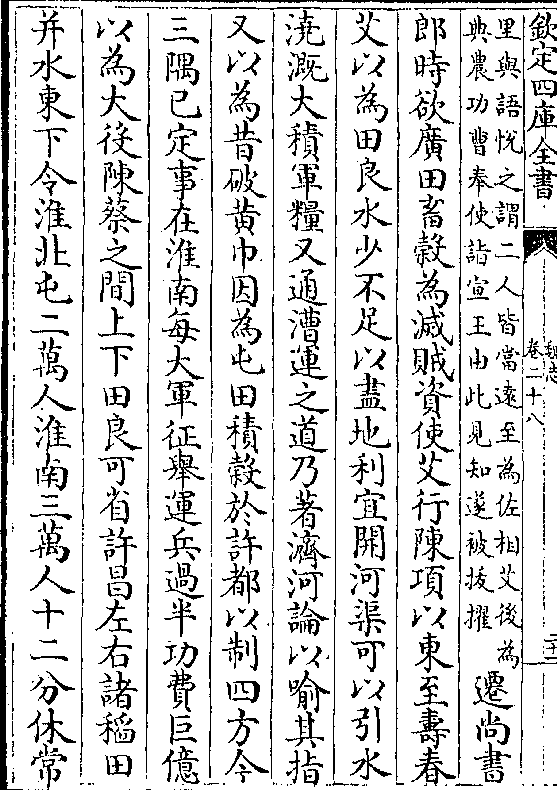 欽定四庫全書
魏志
卷二十八
二十一
里與語悅之謂二人皆當遠至為佐相艾後為
典農功曹奉使詣宣王由此見知遂被拔擢
遷尚書
郎時欲廣田畜穀為滅賊資使艾行陳項以東至壽春
艾以為田良水少不足以盡地利宜開河渠可以引水
澆溉大積軍糧又通漕運之道乃著濟河論以喻其指
又以為昔破黄巾因為屯田積穀於許都以制四方今
三隅已定事在淮南每大軍征舉運兵過半功費巨億
以為大役陳蔡之間上下田良可省許昌左右諸稻田
并水東下令淮北屯二萬人淮南三萬人十二分休常